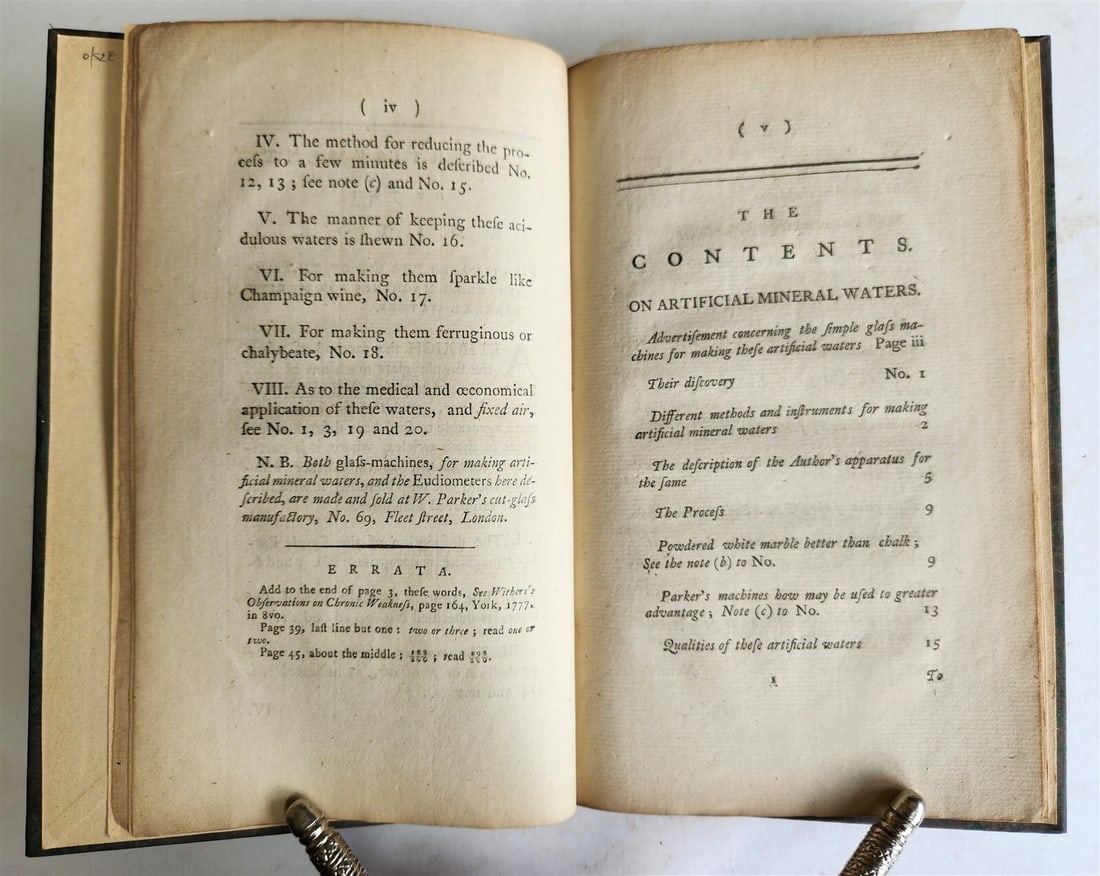 ( iv )
IV. The method for reducing the pro-
ceſs to a few minutes is deſcribed No.
12, 13 ; ſee note (c) and No. 15.
V. The manner of keeping theſe aci-
dulous waters is ſhewn No. 16.
VI. For making them ſparkle like
Champaign wine, No. 17.
VII. For making them ferruginous or
chalybeate, No. 18.
VIII. As to the medical and œconomical
application of theſe waters, and fixed air,
ſee No. 1, 3, 19 and 20.
N. B. Both glaſs-machines, for making arti-
ficial mineral waters, and the Eudiometers here de-
ſcribed, are made and ſold at W. Parker's cut-glaſs
manufactory, No. 69, Fleet ſtreet, London.
ERRATA.
Add to the end of page 3, theſe words, See Withers's
Obſervations on Chronic Weakneſs, page 164, York, 1777,
in 8vo.
Page 39, laſt line but one : two or three ; read one or
two.
Page 45, about the middle : ; read
( v )
THE
CONTENTS.
ON ARTIFICIAL MINERAL WATERS.
Advertiſement concerning the ſimple glaſs ma-
chines for making theſe artificial waters Page iii
Their diſcovery No. 1
Different methods and inſtruments for making
artificial mineral waters 2
The deſcription of the Author's apparatus for
the ſame 5
The Proceſs 9
Powdered white marble better than chalk ;
See the note (b) to No. 9
Parker's machines how may be uſed to greater
advantage ; Note (c) to No. 13
Qualities of theſe artificial waters 15
To